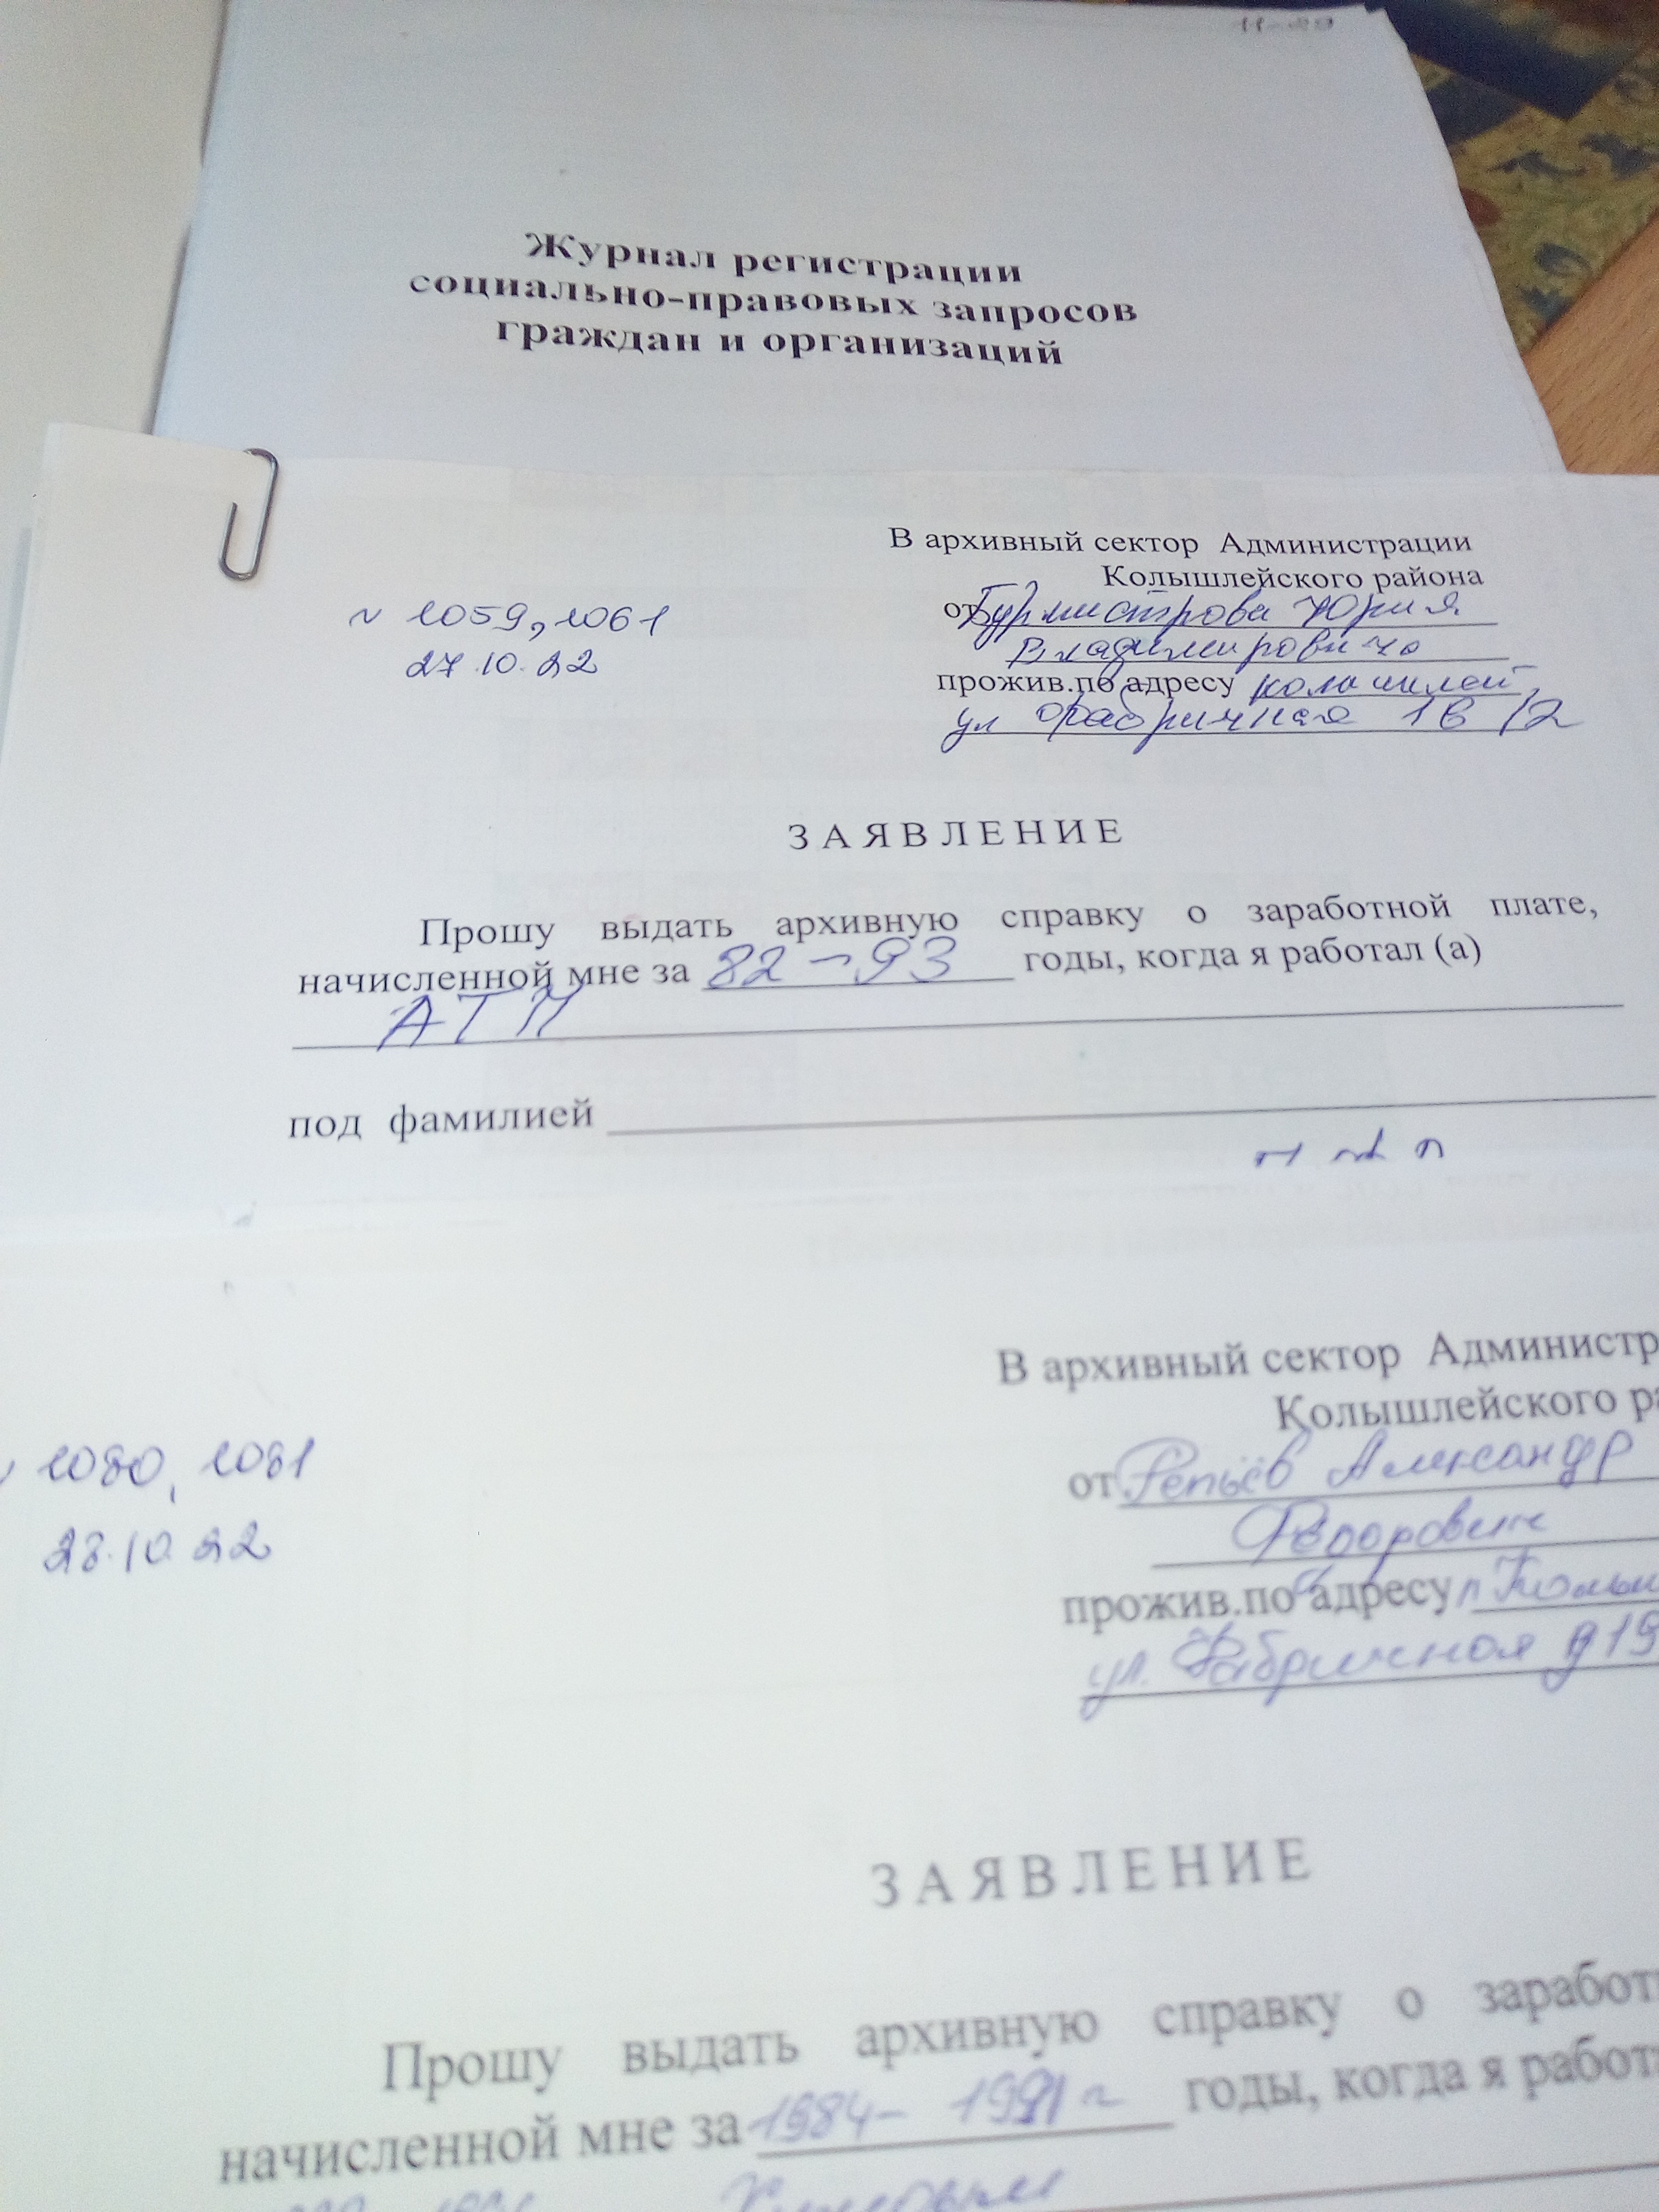 Журнал регистрации
социально-правовых запросов
граждан и организаций
В архивный сектор Администрации
Колышлейского района
№ 1059, 1061
27.10.22
от Бурмистрова Юрия
Владимировича
прожив.по адресу
ул Фабричная 1в/2
ЗАЯВЛЕНИЕ
Прошу выдать архивную справку о заработной плате,
начисленной мне за 82-93 годы, когда я работал (а)
АТП
под фамилией
В архивный сектор Администр
Колышлейского ра
1080, 1081
28.10.22
от Репьёв Александр
Фёдорович
прожив.по адресу
ул. Фабричная д19
ЗАЯВЛЕНИЕ
Прошу выдать архивную справку о заработ
начисленной мне за 1984- 1991 г годы, когда я работ